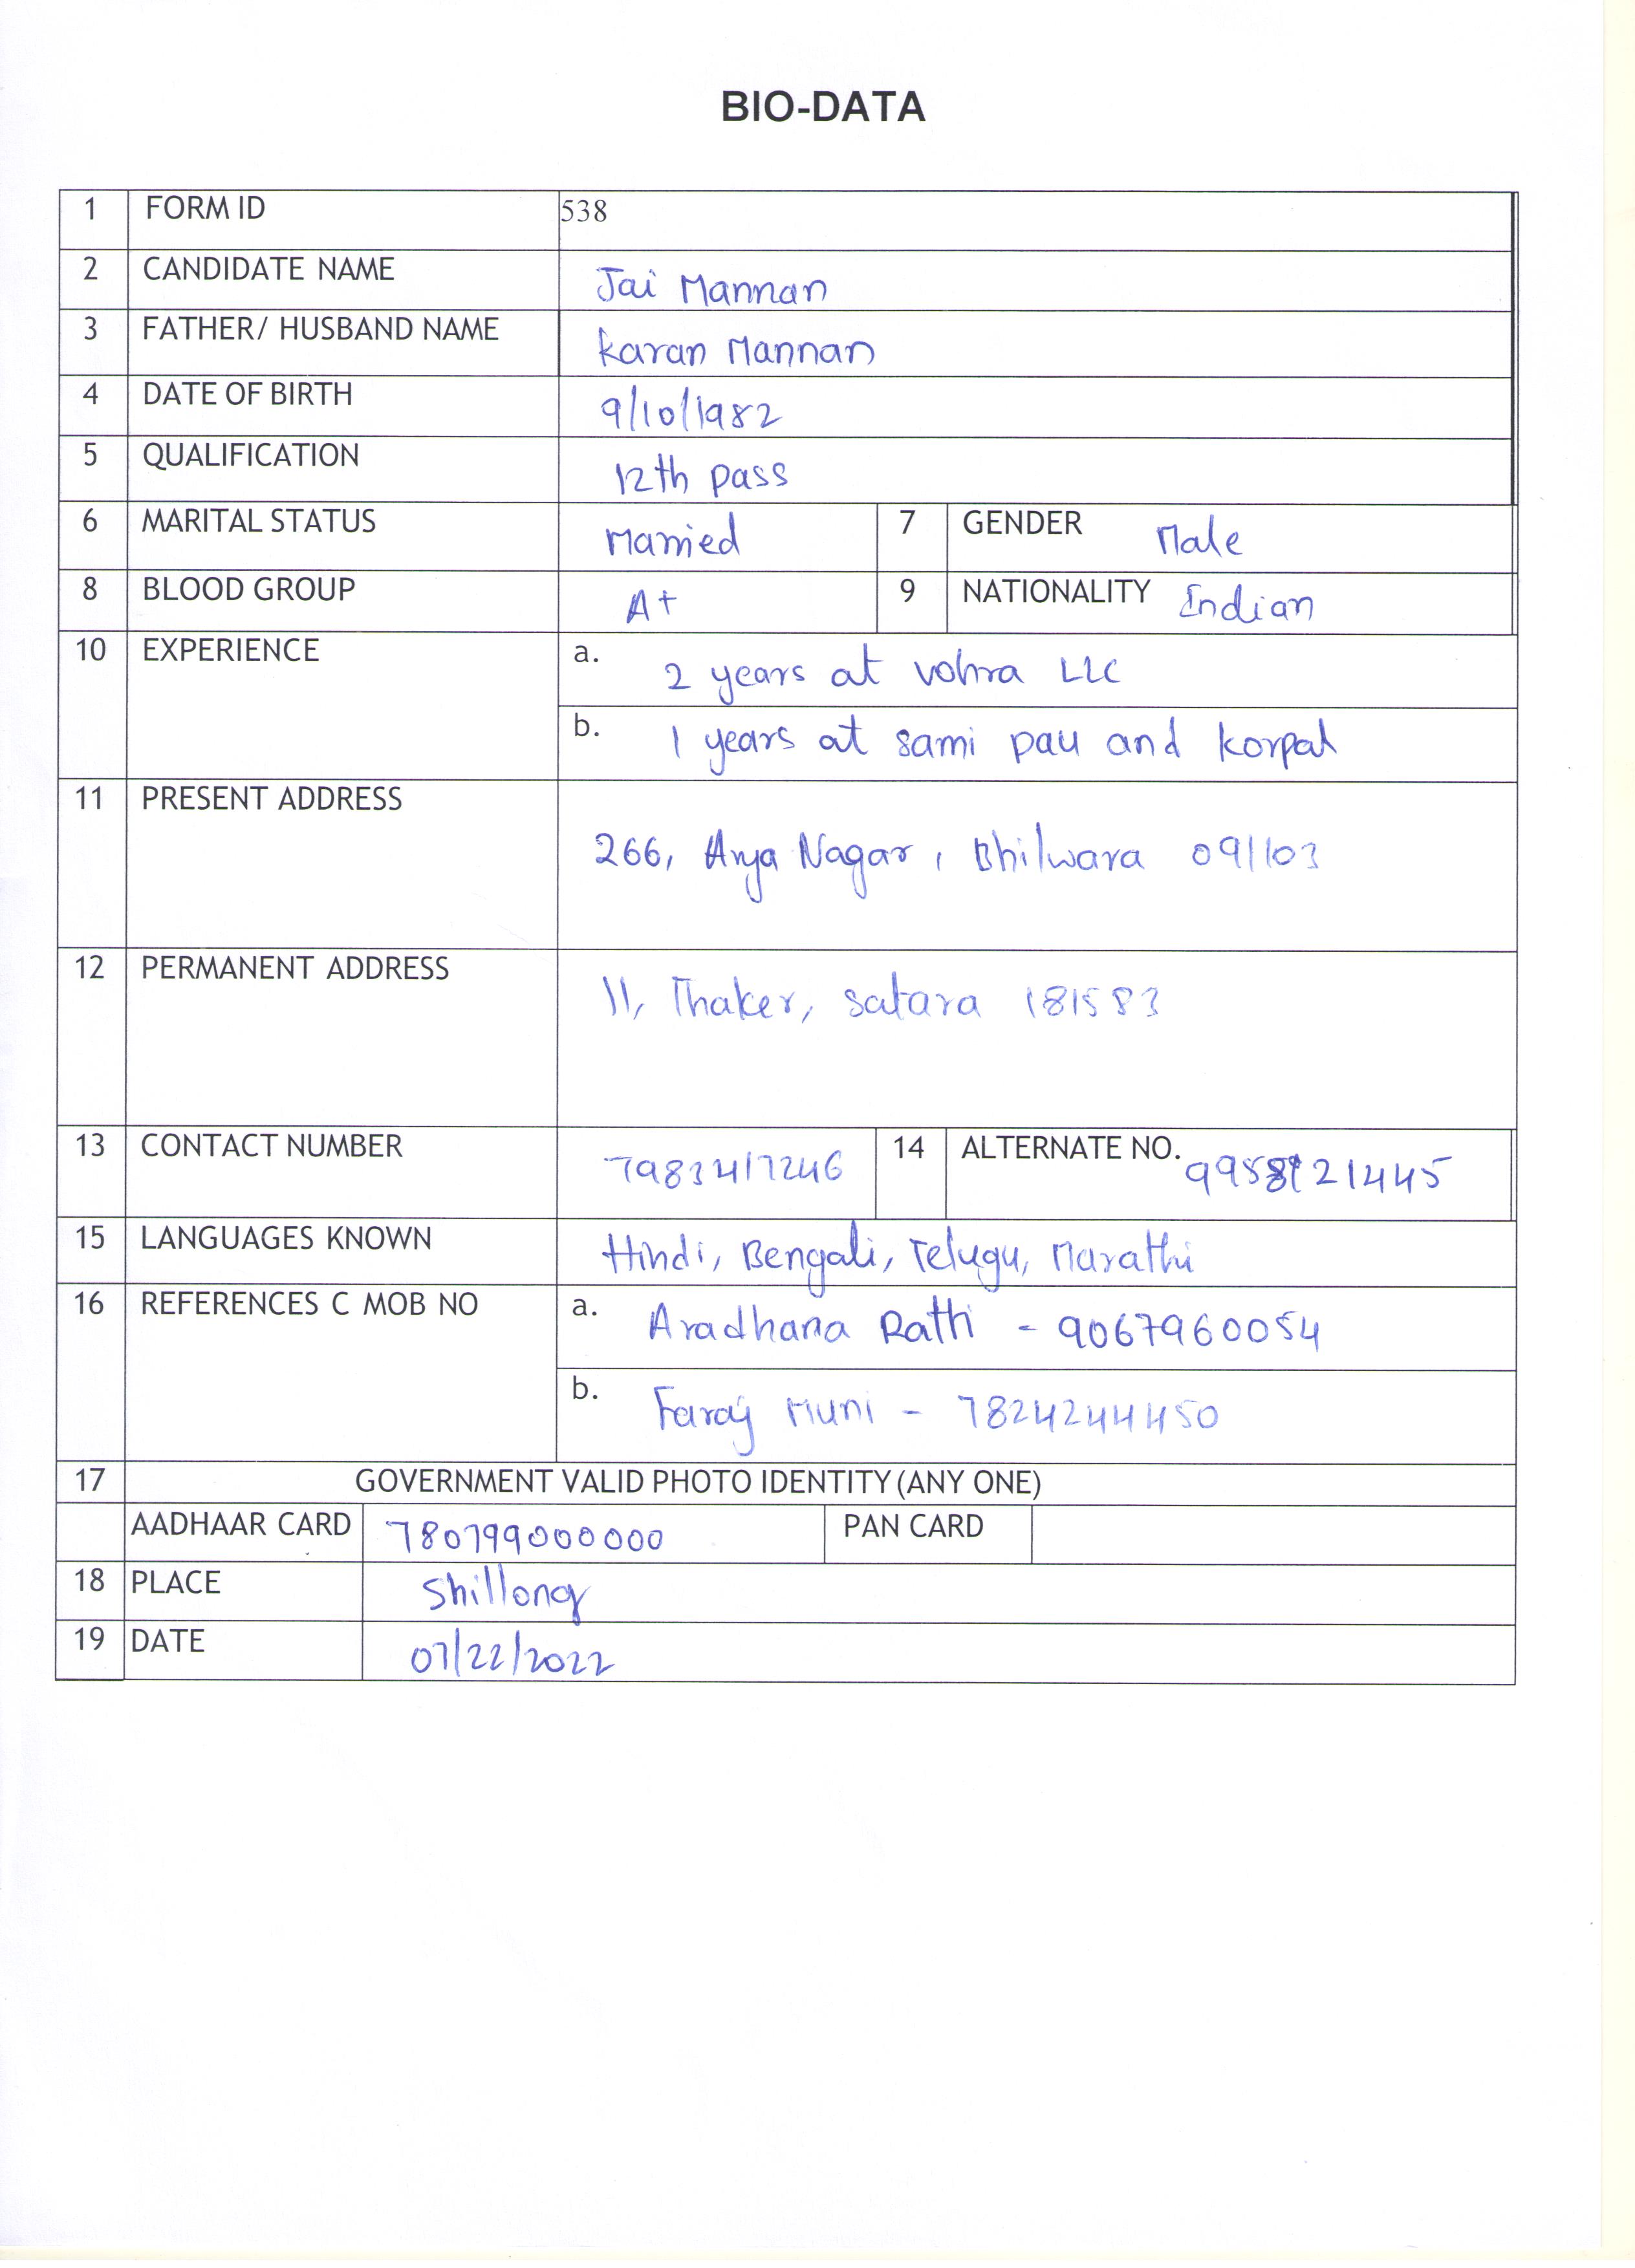 BIO-DATA
1 FORM ID 538
2 CANDIDATE NAME Jai Mannan
3 FATHER/ HUSBAND NAME Karan Mannan
4 DATE OF BIRTH 9/10/1982
5 QUALIFICATION 12th pass
6 MARITAL STATUS Married 7 GENDER Male
8 BLOOD GROUP A+ 9 NATIONALITY Indian
10 EXPERIENCE a. 2 years at Vohra LLC
b. 1 years at sami pau and Korpal
11 PRESENT ADDRESS
266, Arya Nagar, Bhilwara 091103
12 PERMANENT ADDRESS
11, Thaker, Satara 181583
13 CONTACT NUMBER 7983417246 14 ALTERNATE NO.
15 LANGUAGES KNOWN Hindi, Bengali, Telugu, Marathi
16 REFERENCES C MOB NO a. Aradhana Rathi - 9067960054
b. Faraj Muni - 7824244450
17 GOVERNMENT VALID PHOTO IDENTITY (ANY ONE)
AADHAAR CARD 780799000000 PAN CARD
18 PLACE Shillong
19 DATE 07/22/2022